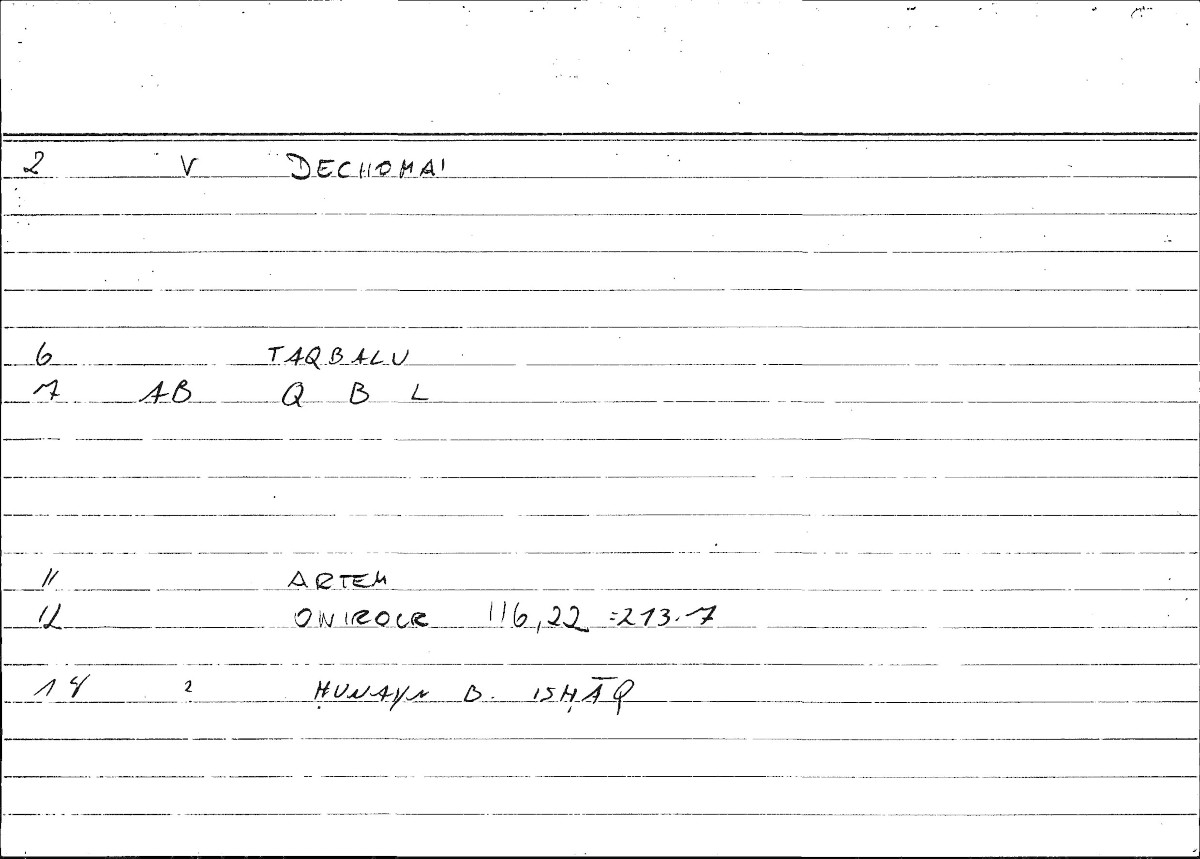 2 V DECHOMAI
6 TAQBALU
7 AB Q B L
11 ARTEM
12 ONIROCR 116,22 =213.7
14 2 ḤUNAYN B. ISḤĀQ